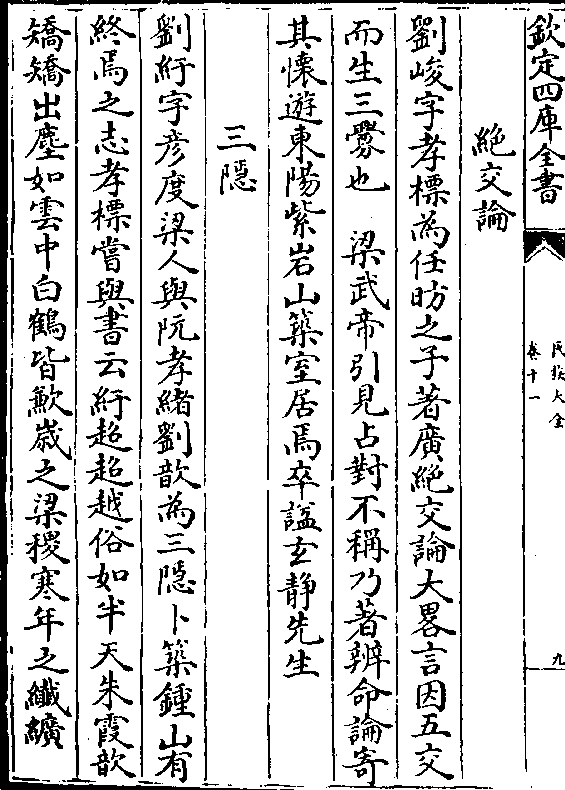 欽定四庫全書
氏族大全
卷十一
九
絶交論
劉峻字孝標為任昉之子著廣絶交論大畧言因五交
而生三釁也 梁武帝引見占對不稱乃著辨命論寄
其懷遊東陽紫岩山築室居焉卒諡玄靜先生
三隠
劉紆字彦度梁人與阮孝緒劉歆為三隠卜築鍾山有
終焉之志孝標嘗與書云紆超超越俗如半天朱霞歆
矯矯出塵如雲中白鶴皆歉嵗之梁稷寒年之纎纊